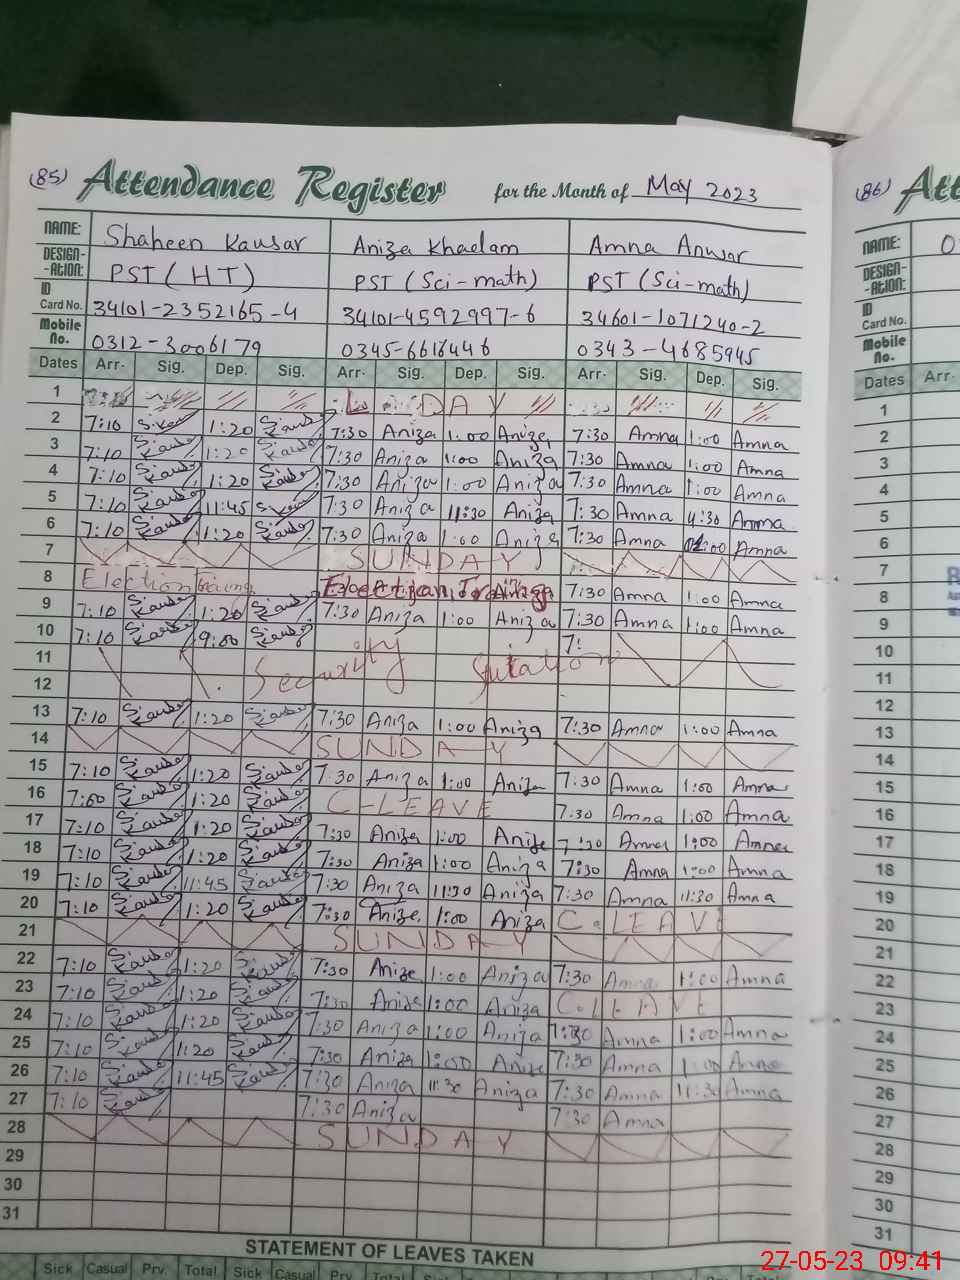 (85) Attendance Register for the Month of May 2023
NAME: Shaheen Kausar Aniza Khaelam Amna Anwar
DESIGN-ATION: PST (HT) PST (Sci-math) PST (Sci-math)
ID Card No. 34101-2352165-4 34101-4592997-6 34601-1071240-2
Mobile No. 0312-3006179 0345-6616446 0343-4685945
Dates Arr. Sig. Dep. Sig. Arr. Sig. Dep. Sig. Arr. Sig. Dep. Sig.
1 DAY
2 7:10 1:20 7:30 Aniza 1:00 Aniza 7:30 Amna 1:00 Amna
3 7:10 1:20 7:30 Aniza 1:00 Aniza 7:30 Amna 1:00 Amna
4 7:10 1:20 7:30 Aniza 1:00 Aniza 7:30 Amna 1:00 Amna
5 7:10 11:45 7:30 Aniza 11:30 Aniza 7:30 Amna Amna
6 7:10 1:20 7:30 Aniza 1:00 Aniza 7:30 Amna Amna
7 SUNDAY
8 Election Training Election Training 7:30 Amna 1:00 Amna
9 7:10 1:20 7:30 Aniza 1:00 Aniza 7:30 Amna 1:00 Amna
10 7:10 9:00 7:
11 Security
12
13 7:10 1:20 7:30 Aniza 1:00 Aniza 7:30 Amna 1:00 Amna
14 SUNDAY
15 7:10 1:20 7:30 Aniza 1:00 Aniza 7:30 Amna 1:00 Amna
16 7:00 1:20 C-LEAVE 7:30 Amna 1:00 Amna
17 7:10 1:20 7:30 Aniza 1:00 Aniza 7:30 Amna 1:00 Amna
18 7:10 1:20 7:30 Aniza 1:00 Aniza 7:30 Amna 1:00 Amna
19 7:10 11:45 7:30 Aniza 11:30 Aniza 7:30 Amna 11:30 Amna
20 7:10 1:20 7:30 Aniza 1:00 Aniza C.LEAVE
21 SUNDAY
22 7:10 1:20 7:30 Aniza 1:00 Aniza 7:30 Amna 1:00 Amna
23 7:10 1:20 7:30 Aniza 1:00 Aniza C.LEAVE
24 7:10 1:20 7:30 Aniza 1:00 Aniza 7:30 Amna 1:00 Amna
25 7:10 1:20 7:30 Aniza 1:00 Aniza 7:30 Amna 1:00 Amna
26 7:10 11:45 7:30 Aniza 11:30 Aniza 7:30 Amna 11:30 Amna
27 7:10 7:30 Aniza 7:30 Amna
28 SUNDAY
29
30
31
STATEMENT OF LEAVES TAKEN
Sick Casual Prv. Total Sick Casual Prv. Total
(86) Att
NAME:
DESIGN-ATION:
ID Card No.
Mobile No.
Dates Arr.
1
2
3
4
5
6
7
8
9
10
11
12
13
14
15
16
17
18
19
20
21
22
23
24
25
26
27
28
29
30
31
27-05-23 09:41